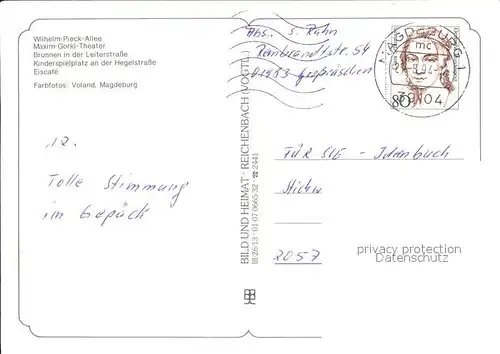 Wilhelm-Pieck-Allee
Maxim-Gorki-Theater
Brunnen in der Leiterstraße
Kinderspielplatz an der Hegelstraße
Eiscafé
Farbfotos: Voland, Magdeburg
Abs.: S. Rahn
MAGDEBURG 1
mc
-8.94-
39104
80
BILD UND HEIMAT · REICHENBACH (VOGTL)
III/26/13 · 01-07 0665/32 · ☎ 2441
12.
Tolle Stimmung
im Gepäck
FÜR SIE - Ideenbuch
2057
privacy protection
Datenschutz